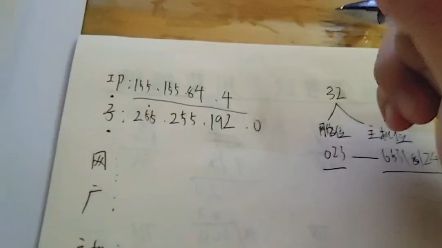 IP:155.155.84.4
子:255.255.192.0
网:
广:
32
网络位 主机位